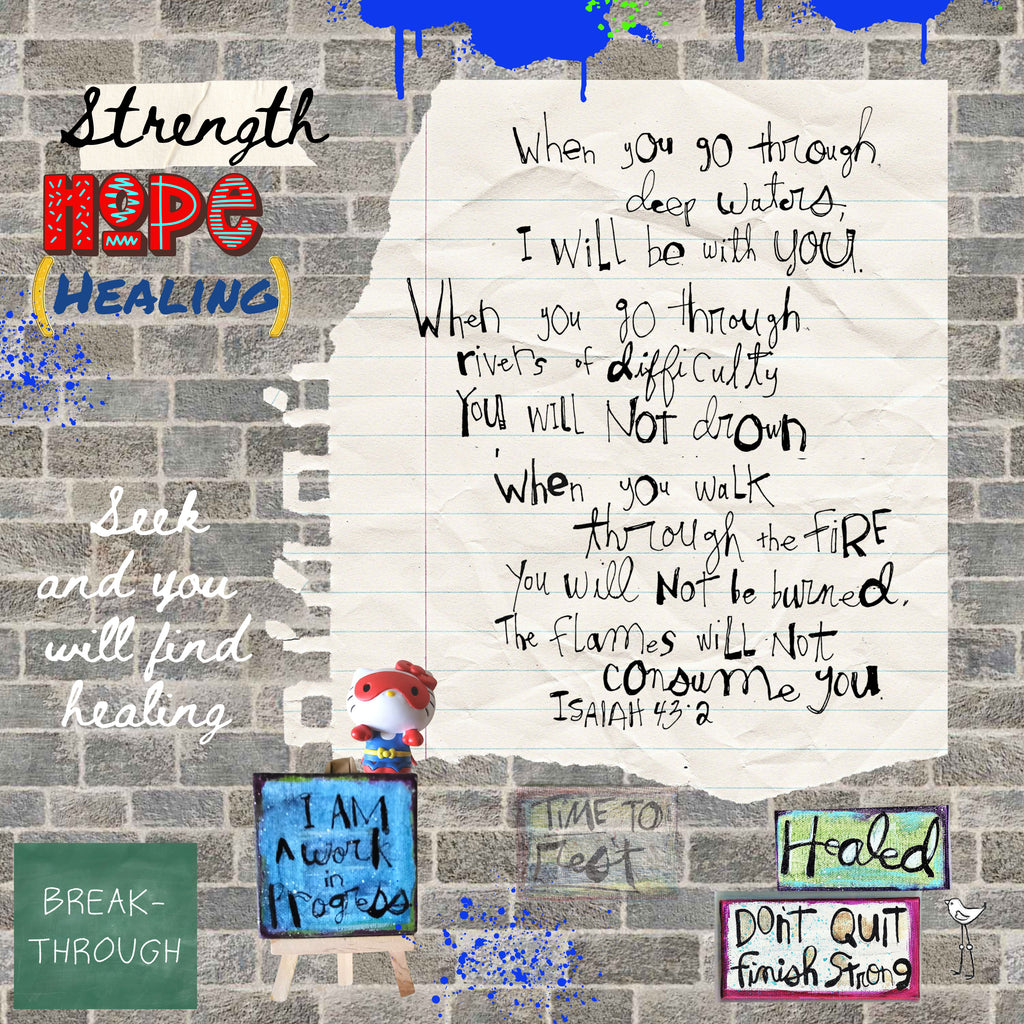 Strength
HOPE
(HEALING)
Seek
and you
will find
healing
When you go through
deep waters,
I WiLL be with YOU.
When you go through
rivers of difficulty
You will Not drown
when you walk
through the FIRE
You will Not be burned.
The flames will Not
consume you.
ISAIAH 43:2
I AM
A work
in
Progess
BREAK-
THROUGH
TIME TO
Healed
DON't QUIT
finish Strong